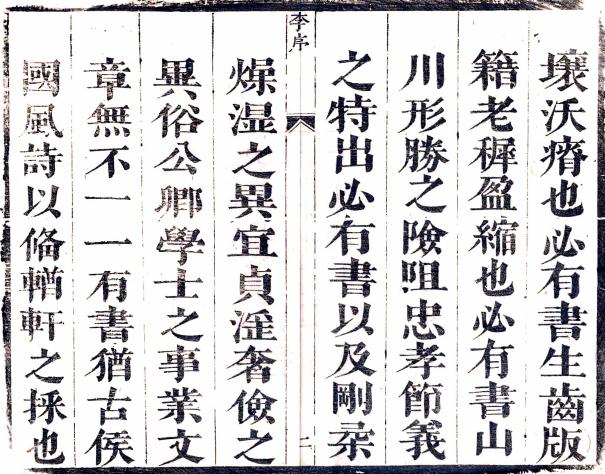 壤沃瘠也必有書生齒版
籍老穉盈縮也必有書山
川形勝之險咀忠孝節義
之特出必有書以及剛柔
李序
二
燥湿之異宜貞淫奢儉之
異俗公卿學士之事業文
章無不一一有書猶古侯
國風詩以俻輶軒之採也